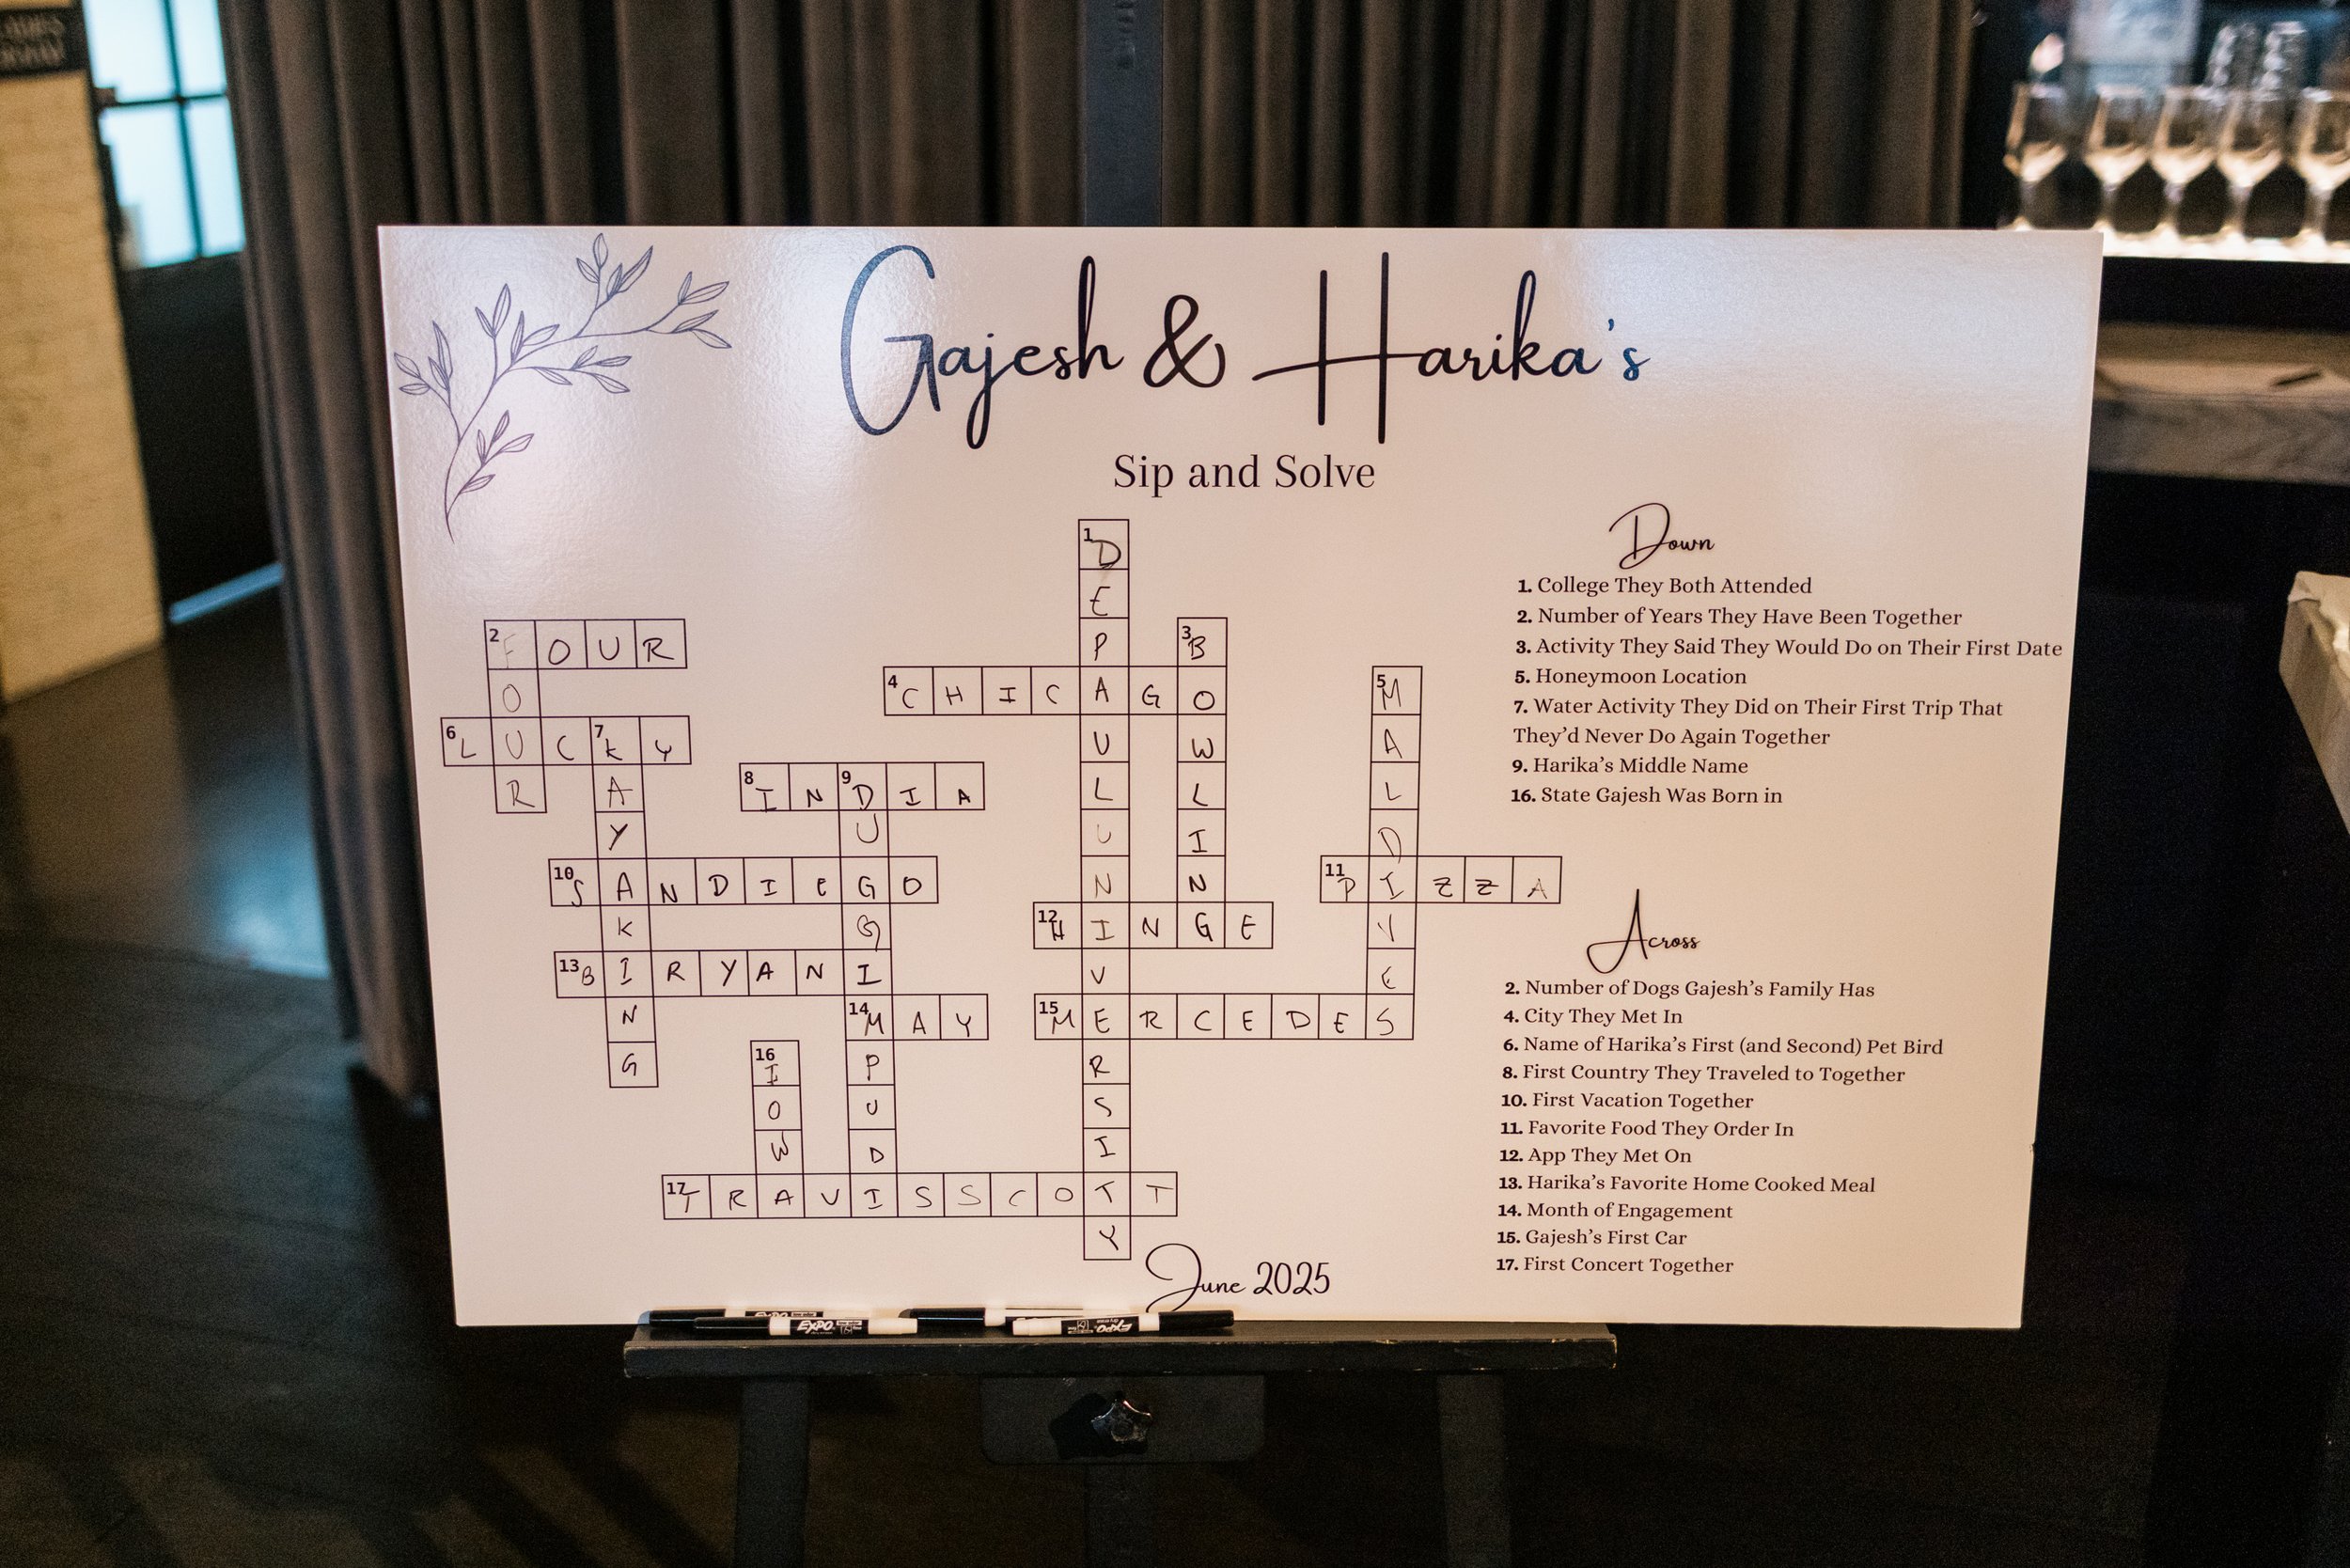 Gajesh & Harika's
Sip and Solve
Down
1. College They Both Attended
2. Number of Years They Have Been Together
3. Activity They Said They Would Do on Their First Date
5. Honeymoon Location
7. Water Activity They Did on Their First Trip That
They'd Never Do Again Together
9. Harika's Middle Name
16. State Gajesh Was Born in
Across
2. Number of Dogs Gajesh's Family Has
4. City They Met In
6. Name of Harika's First (and Second) Pet Bird
8. First Country They Traveled to Together
10. First Vacation Together
11. Favorite Food They Order In
12. App They Met On
13. Harika's Favorite Home Cooked Meal
14. Month of Engagement
15. Gajesh's First Car
17. First Concert Together
1 DEPAULUNIVERSITY
2 FOUR
FOUR
3 BOWLING
4 CHICAGO
5 MALDIVES
6 LUCKY
7 KAYAKING
8 INDIA
9 DUGGIMPUDI
10 SANDIEGO
11 PIZZA
12 HINGE
13 BIRYANI
14 MAY
15 MERCEDES
16 IOWA
17 TRAVISSCOTT
June 2025
EXPO
EXPO
EXPO